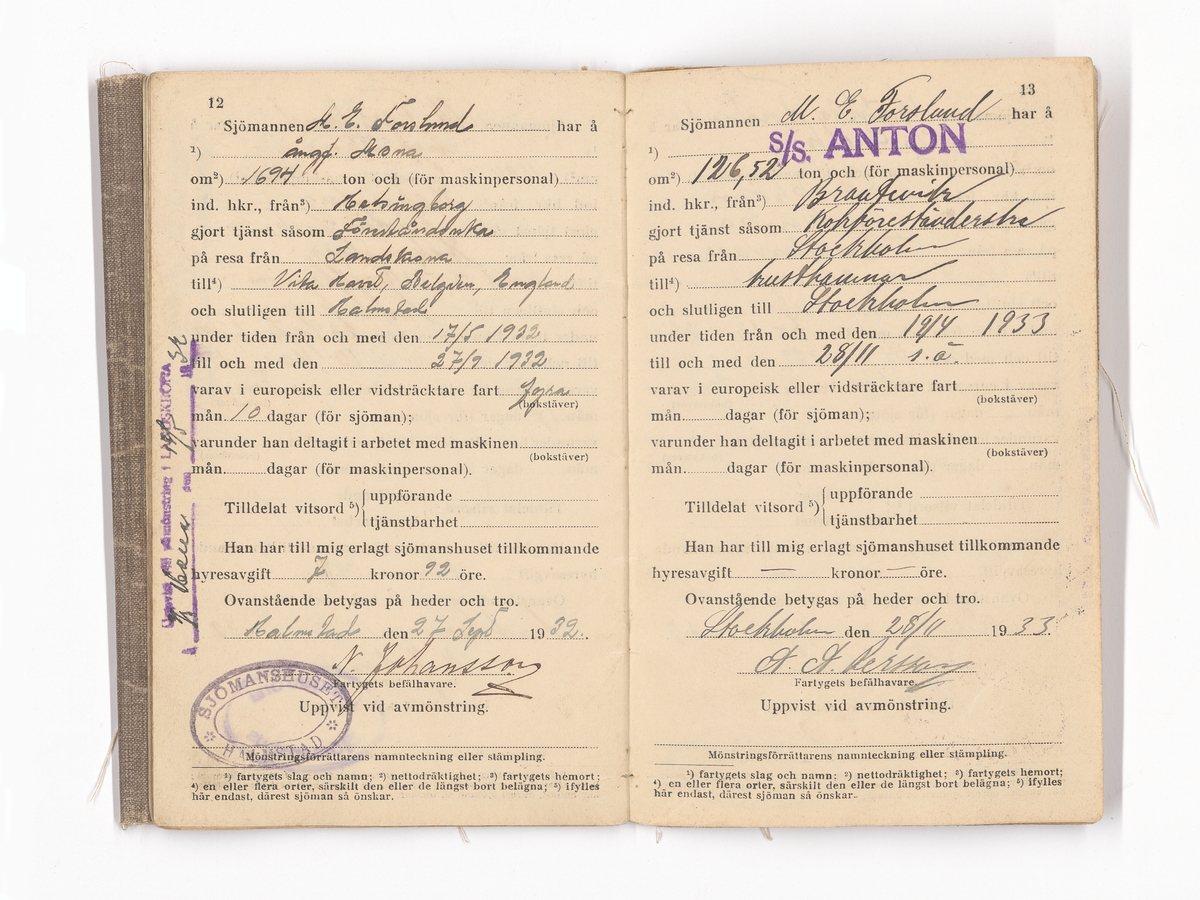 12
Sjömannen M. E. Forslund har å
¹) ångf. Mona
om²) 1694 ton och (för maskinpersonal)
ind. hkr., från³) Helsingborg
gjort tjänst såsom
på resa från Landskrona
till⁴) Vita Havet, Belgien, England
och slutligen till Halmstad
under tiden från och med den 17/5 1932
till och med den 27/9 1932
varav i europeisk eller vidsträcktare fart fyra
(bokstäver)
mån. 10 dagar (för sjöman);
varunder han deltagit i arbetet med maskinen
(bokstäver)
mån. dagar (för maskinpersonal).
Tilldelat vitsord ⁵) uppförande
tjänstbarhet
Han har till mig erlagt sjömanshuset tillkommande
hyresavgift 7 kronor 92 öre.
Ovanstående betygas på heder och tro.
Halmstad den 27 Sept 1932.
N. Johansson
Fartygets befälhavare.
Uppvist vid avmönstring.
SJÖMANSHUSET
HALMSTAD
Mönstringsförrättarens namnteckning eller stämpling.
¹) fartygets slag och namn; ²) nettodräktighet; ³) fartygets hemort;
⁴) en eller flera orter, särskilt den eller de längst bort belägna; ⁵) ifylles
här endast, därest sjöman så önskar.
Uppvist vid påmönstring i LANDSKRONA
den 19/5 1932
13
Sjömannen M. E. Forslund har å
¹) S/S. ANTON
om²) 126,52 ton och (för maskinpersonal)
ind. hkr., från³) Brantevik
gjort tjänst såsom
på resa från Stockholm
till⁴) kusthamnar
och slutligen till Stockholm
under tiden från och med den 19/4 1933
till och med den 28/11 s. å.
varav i europeisk eller vidsträcktare fart
(bokstäver)
mån. dagar (för sjöman);
varunder han deltagit i arbetet med maskinen
(bokstäver)
mån. dagar (för maskinpersonal).
Tilldelat vitsord ⁵) uppförande
tjänstbarhet
Han har till mig erlagt sjömanshuset tillkommande
hyresavgift — kronor — öre.
Ovanstående betygas på heder och tro.
Stockholm den 28/11 1933.
A. A. Persson
Fartygets befälhavare.
Uppvist vid avmönstring.
Mönstringsförrättarens namnteckning eller stämpling.
¹) fartygets slag och namn; ²) nettodräktighet; ³) fartygets hemort;
⁴) en eller flera orter, särskilt den eller de längst bort belägna; ⁵) ifylles
här endast, därest sjöman så önskar.